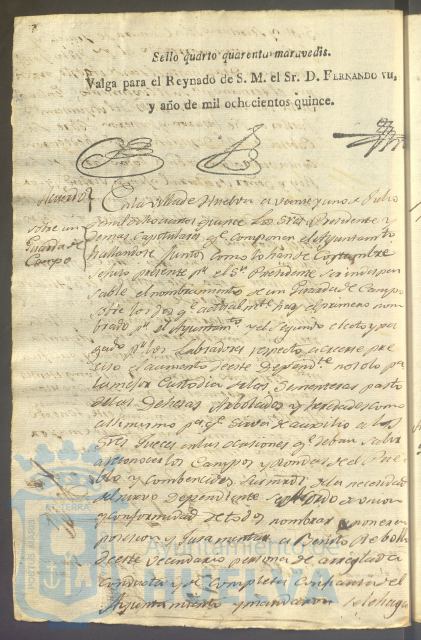 Sello quarto quarenta maravedis.
Valga para el Reynado de S. M. el Sr. D. FERNANDO VII,
y año de mil ochocientos quince.
Acuerdo
sobre un
Guarda de
Campo
En la Villa de Huelva a veinte y uno de Julio
mil ochocientos quince Los Sres Presidente y
demas Capitulares qe componen el Ayuntamto
hallandose juntos como lo han de Costumbre
se hizo presente pr el Sr Presidente ser indispen
sable el nombramiento de un Guarda de Campo
sobre los dos qe actualmte hay el primero nom
brado pr el Ayuntamto y el segundo electo y pa
gado pr los Labradores respecto a creerse pre
ciso el aumento de este Dependte no solo pa
la mejor Custodia de las Sementeras pasto
de las Dehesas Arbolados y heredades como
asimismo pa qe sirva de auxilio a los
Sres Jueces en las ocasiones qe deban salir
a reconocer los Campos y Rondas de el Pue
blo y Combencidos sus mrds de la necesidad
del nuevo dependiente de union
y conformidad de todos nombrar poner en
posesion y Juramentar a Benito Rebollo
de este Vecindario persona de arreglada
Conducta y de Completa Confianza del
Ayuntamiento y mandaron se le haga
Ayuntamiento de
HUELVA